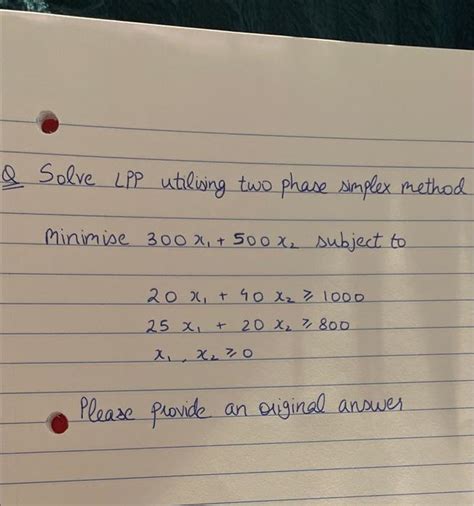 Q Solve LPP utilising two phase simplex method
Minimise 300 x₁ + 500 x₂ subject to
20 x₁ + 40 x₂ ≥ 1000
25 x₁ + 20 x₂ ≥ 800
x₁, x₂ ≥ 0
Please provide an original answer